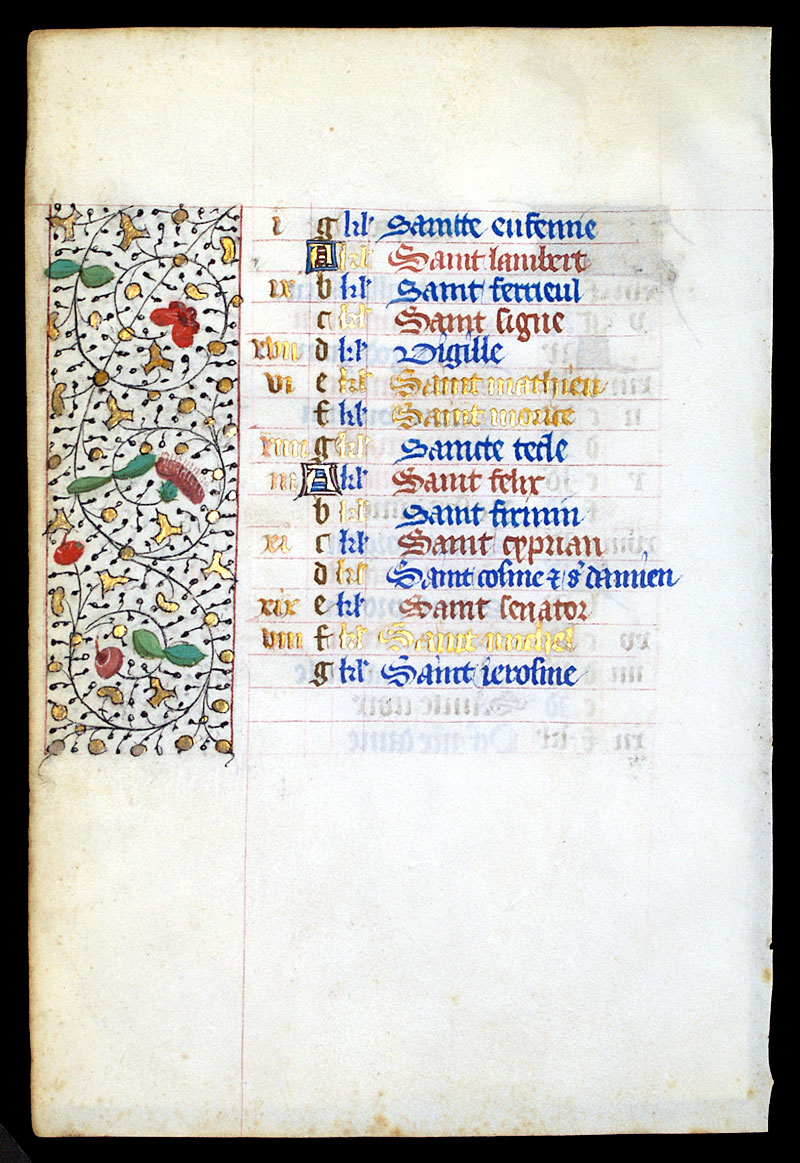 i g kl' Saincte eufenne
A kl' Saint lambert
ix b kl' Saint ferrieul
c kl' Saint signe
xvii d kl' Vigille
vi e kl' Saint mathieu
f kl' Saint morice
xiiii g kl' Saincte tecle
iii A kl' Saint felix
b kl' Saint firmin
xi c kl' Saint cyprian
d kl' Saint cosme & s' damien
xix e kl' Saint senator
viii f kl' Saint michel
g kl' Saint ierosme